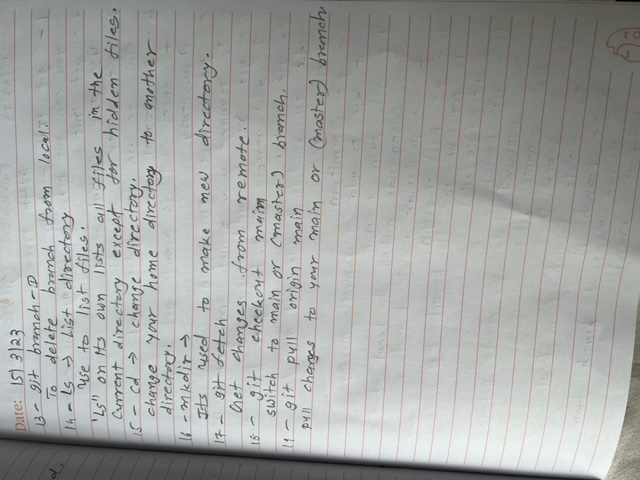 Date: 15/3/23
13 - git branch -D
To delete branch from local.
14 - Ls → List directory
Use to list files.
"Ls" on its own lists all files in the
current directory except for hidden files.
15 - cd → change directory.
change your home directory to another
directory.
16 - mkdir →
Its used to make new directory.
17 - git fetch
Get changes from remote.
18 - git checkout main
switch to main or (master) branch.
19 - git pull origin main
pull changes to your main or (master) branch